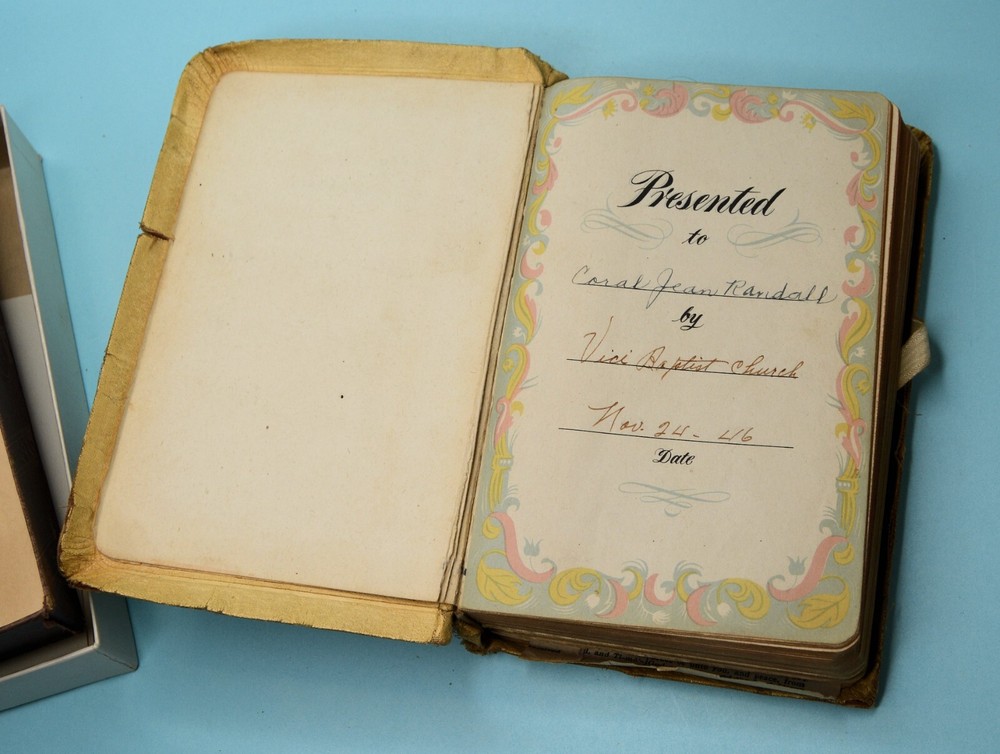 Presented
to
Coral Jean Randall
by
Vici Baptist Church
Nov. 24 - 46
Date